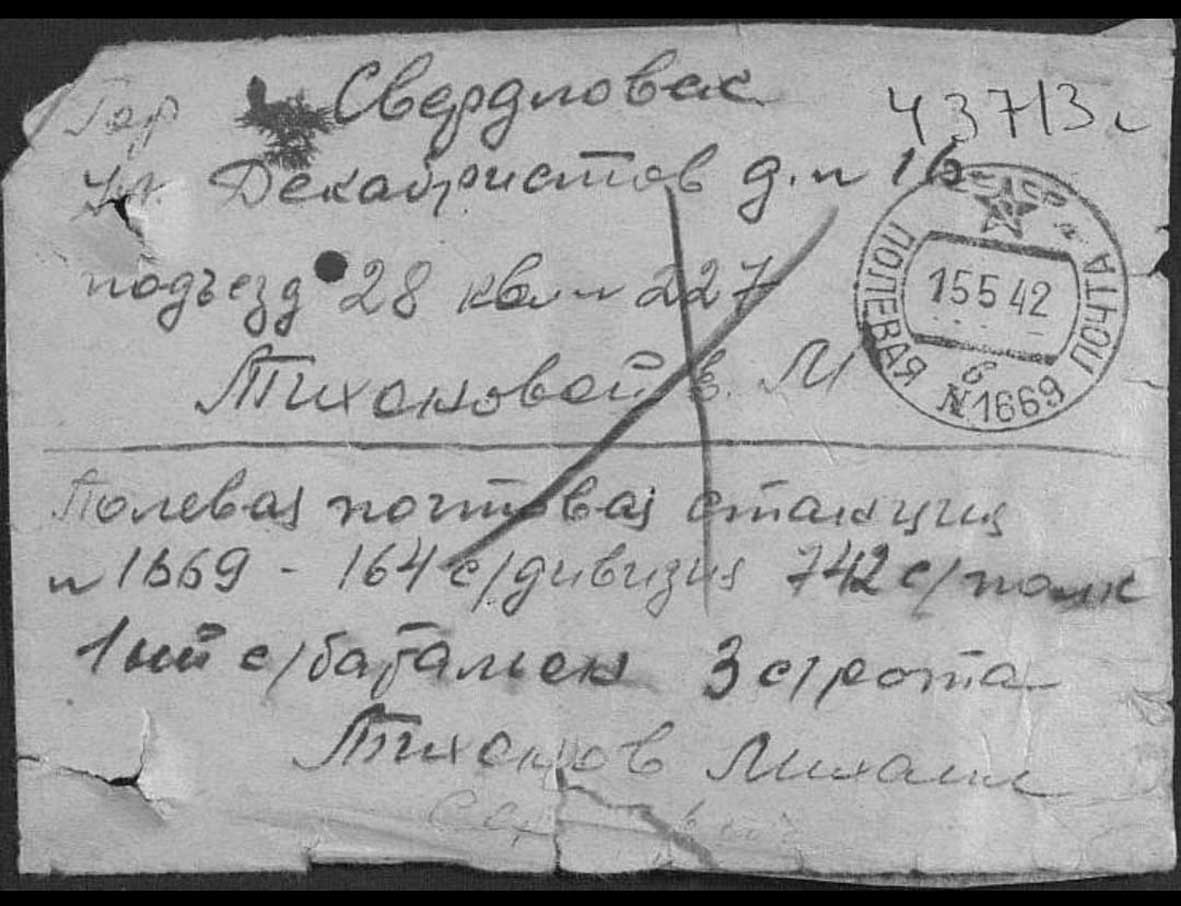 Гор Свердловск
43713
Ул. Декабристов д. N 16
подъезд 28 кв. N 227
Тихоновой Е. М
ПОЛЕВАЯ ПОЧТА
15 5 42
б
N1669
Полевая почтовая станция
N 1669 - 164 с/дивизия 742 с/полк
1ый с/батальен 3 с/рота
Тихонов Михаил